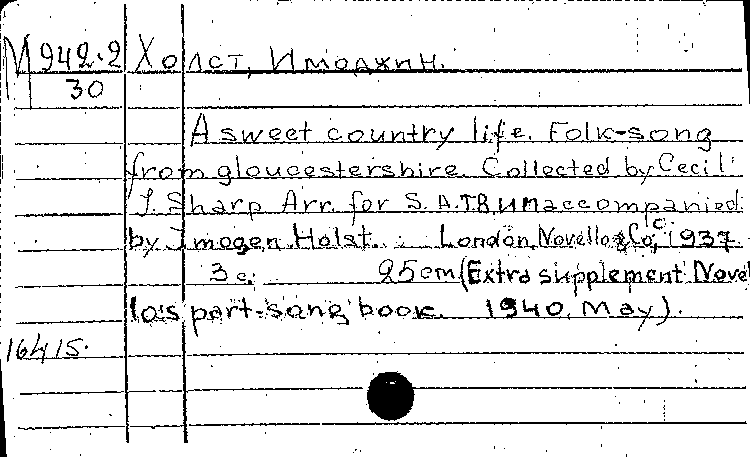 М 942.2 Холст, Имоджин.
30
A sweet country life. Folk-song
from gloucestershire. Collected by Cecil
J. Sharp Arr. for S.A.T.B. unaccompanied
by Imogen Holst. London, Novello & Co, c 1937
3 c. 25 cm (Extra supplement Novel
lo's part-song book. 1940, May).
16415.